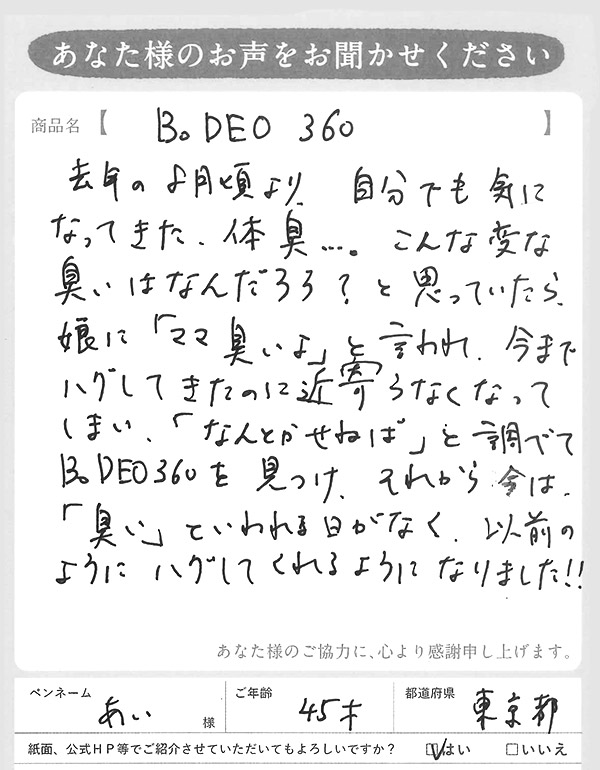 あなた様のお声をお聞かせください
商品名【 B.DEO 360 】
去年の8月頃より、自分でも気に
なってきた、体臭…。こんな変な
臭いはなんだろう？と思っていたら、
娘に「ママ臭いよ」と言われ、今まで
ハグしてきたのに近寄らなくなって
しまい、「なんとかせねば」と調べて
B.DEO360を見つけ、それから今は、
「臭い」といわれる日がなく、以前の
ようにハグしてくれるようになりました!!
あなた様のご協力に、心より感謝申し上げます。
ペンネーム あい 様 ご年齢 45才 都道府県 東京都
紙面、公式ＨＰ等でご紹介させていただいてもよろしいですか？ ☑はい □いいえ